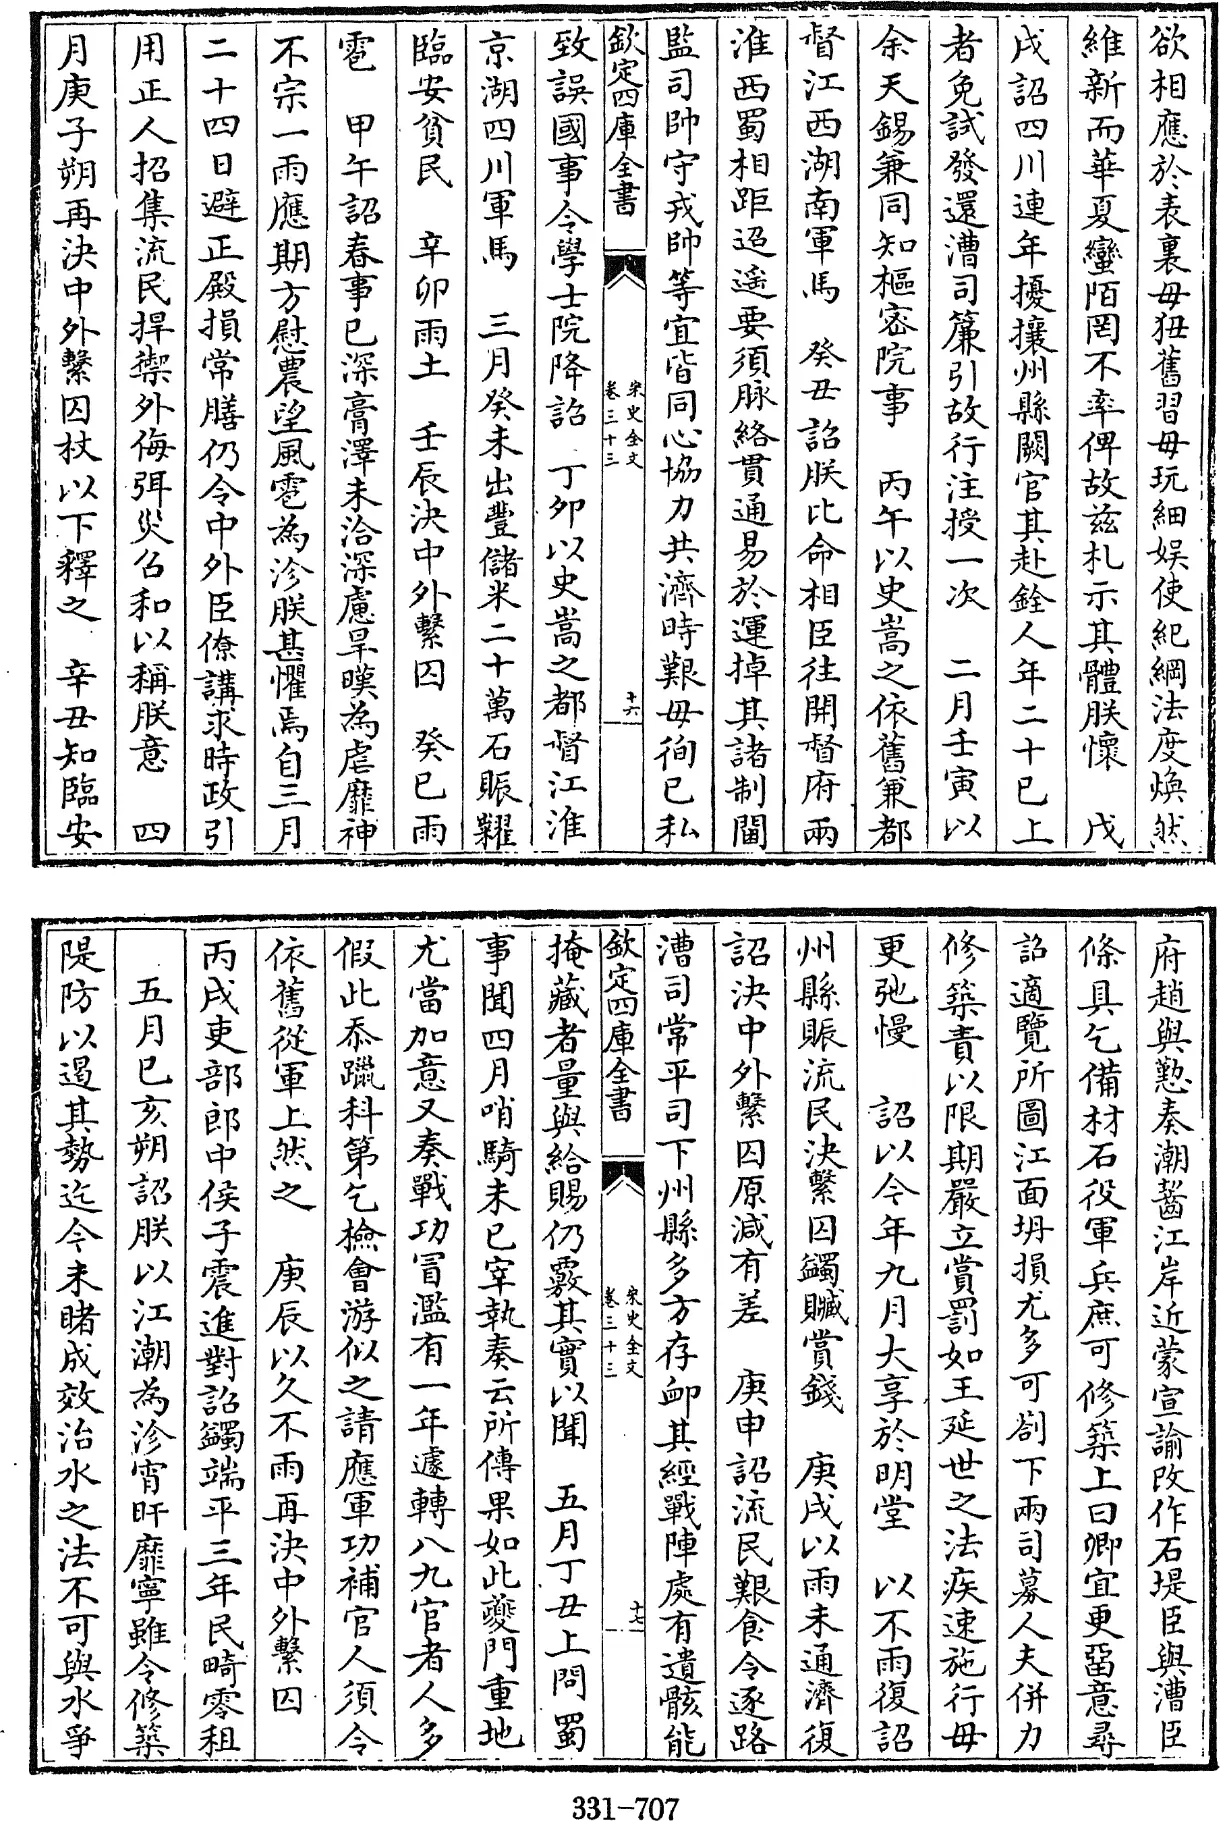 欲相應於表裏毋狃舊習毋玩細娱使紀綱法度煥然
維新而華夏蠻陌罔不率俾故兹札示其體朕懷　戊
戌詔四川連年擾攘州縣闕官其赴銓人年二十已上
者免試發還漕司簾引故行注授一次　二月壬寅以
余天錫兼同知樞密院事　丙午以史嵩之依舊兼都
督江西湖南軍馬　癸丑詔朕比命相臣往開督府兩
淮西蜀相距迢遥要須脉絡貫通易於運掉其諸制閫
監司帥守戎帥等宜皆同心協力共濟時艱毋徇已私
欽定四庫全書
宋史全文
卷三十三
十六
致誤國事令學士院降詔　丁卯以史嵩之都督江淮
京湖四川軍馬　三月癸未出豐儲米二十萬石賑糶
臨安貧民　辛卯雨土　壬辰決中外繫囚　癸巳雨
雹　甲午詔春事已深膏澤未洽深慮旱暵為虐靡神
不宗一雨應期方慰農望風雹為沴朕甚懼焉自三月
二十四日避正殿損常膳仍令中外臣僚講求時政引
用正人招集流民捍禦外侮弭災召和以稱朕意　四
月庚子朔再決中外繫囚杖以下釋之　辛丑知臨安
府趙與懃奏潮齧江岸近蒙宣諭改作石堤臣與漕臣
條具乞備材石役軍兵庶可修築上曰卿宜更留意尋
詔適覽所圖江面坍損尤多可劄下兩司募人夫併力
修築責以限期嚴立賞罰如王延世之法疾速施行毋
更弛慢　詔以今年九月大享於明堂　以不雨復詔
州縣賑流民決繫囚蠲贓賞錢　庚戌以雨未通濟復
詔決中外繫囚原減有差　庚申詔流民艱食令逐路
漕司常平司下州縣多方存卹其經戰陣處有遺骸能
欽定四庫全書
宋史全文
卷三十三
十七
掩藏者量與給賜仍覈其實以聞　五月丁丑上問蜀
事聞四月哨騎未已宰執奏云所傳果如此夔門重地
尤當加意又奏戰功冒濫有一年遽轉八九官者人多
假此忝躐科第乞檢會游似之請應軍功補官人須令
依舊從軍上然之　庚辰以久不雨再決中外繫囚
丙戌吏部郎中侯子震進對詔蠲端平三年民畸零租
五月巳亥朔詔朕以江潮為沴宵旰靡寧雖令修築
隄防以遏其勢迄今未睹成效治水之法不可與水爭
331-707